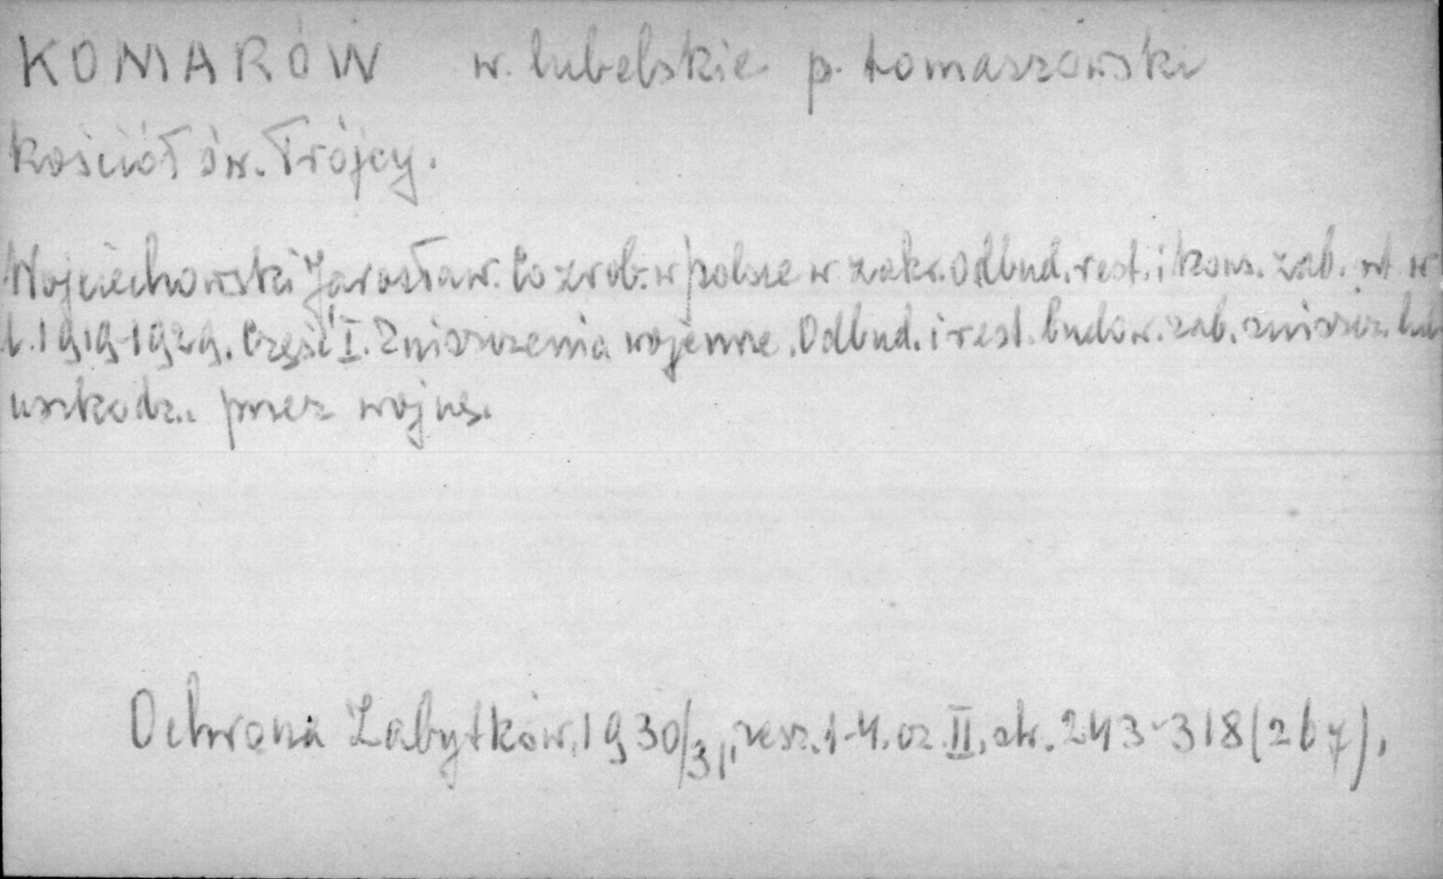 KOMARÓW w. lubelskie p. tomaszowski
Kościół św. Trójcy.
Wojciechowski Jarosław. Co zrob. w Polsce w zakr. Odbud. rest. i kons. zab. w
l. 1919-1929. Część I. Zniszczenia wojenne. Odbud. i rest. budow. zab. zniszcz. lub
uszkodz. przez wojnę.
Ochrona Zabytków, 1930/31, zesz. 1-4. cz. II, str. 243-318 (267).